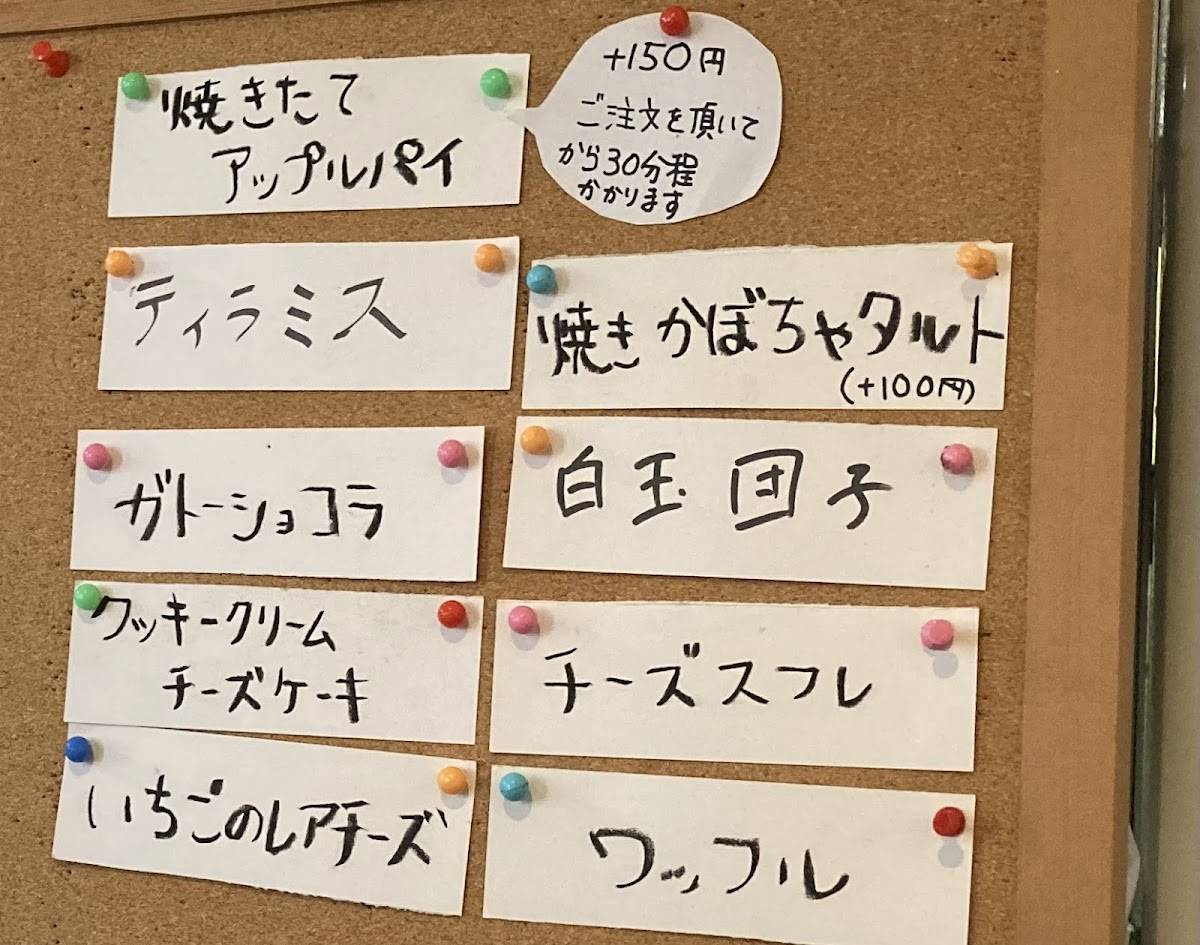 焼きたて
アップルパイ
+150円
ご注文を頂いて
から30分程
かかります
ティラミス
焼きかぼちゃタルト
(+100円)
ガトーショコラ
白玉団子
クッキークリーム
チーズケーキ
チーズスフレ
いちごのレアチーズ
ワッフル